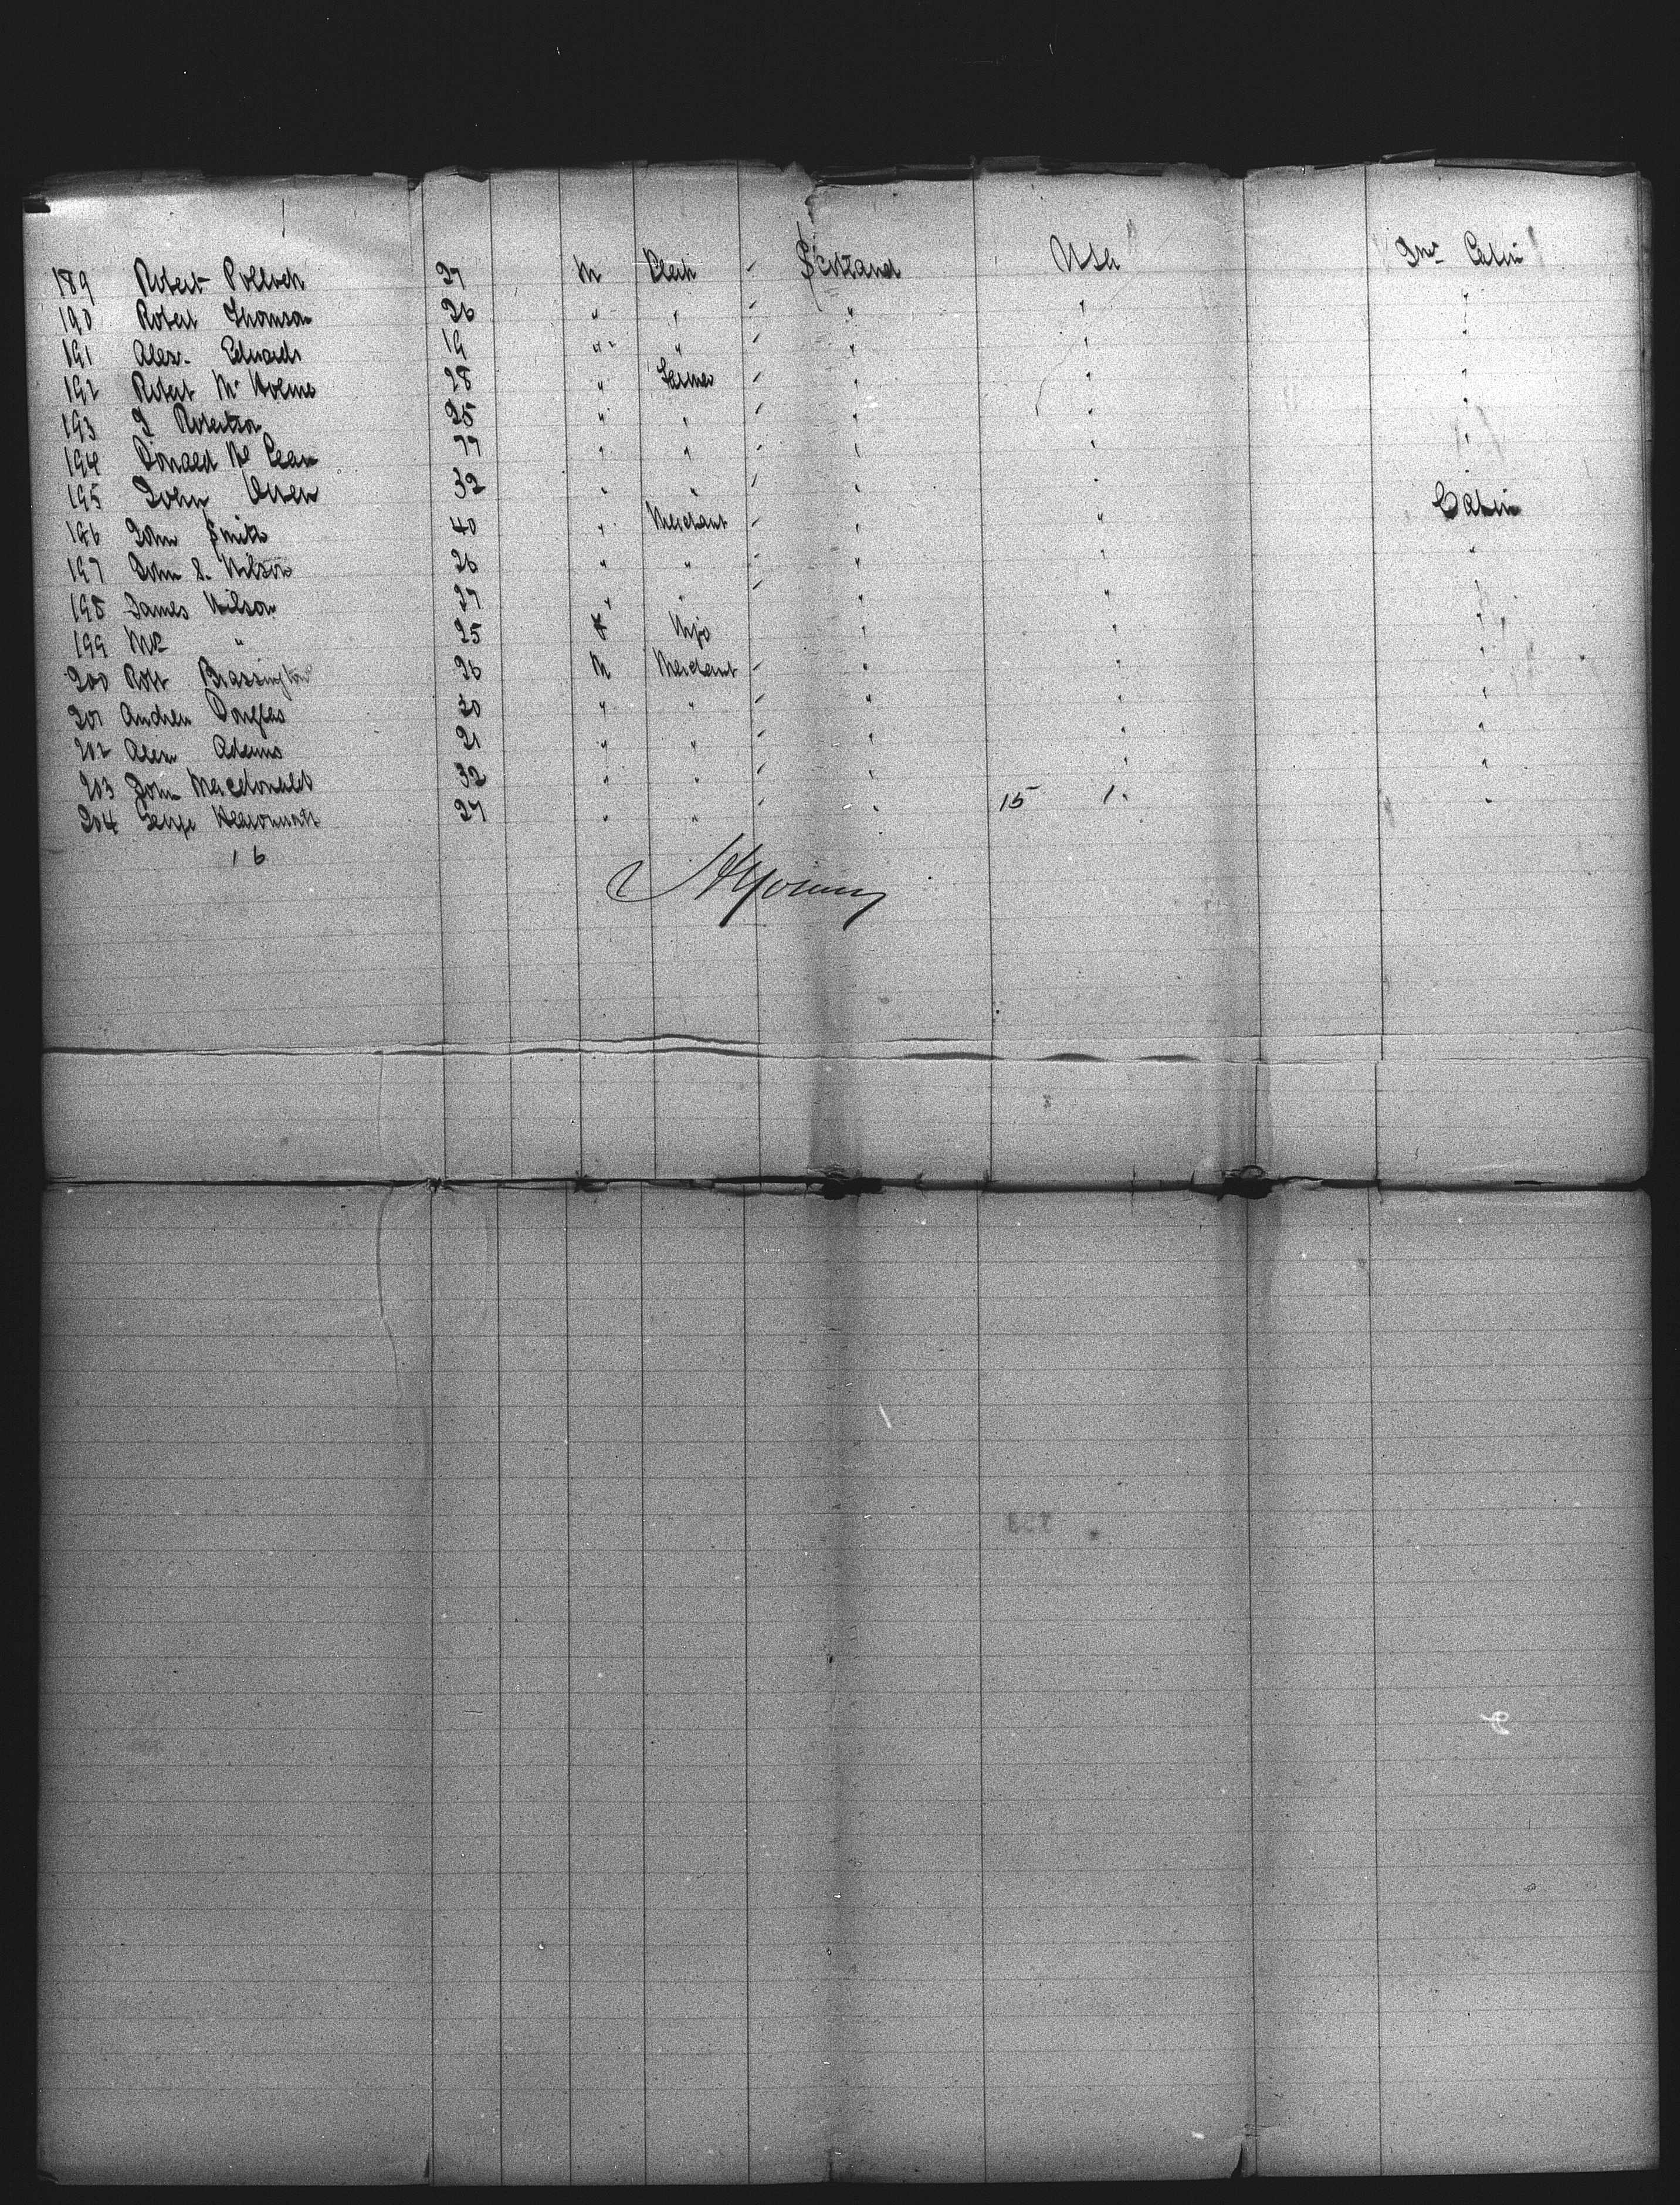 189 Robert Pollock 27 M Clerk ✓ Scotland USA Int Cabin
190 Robert Thomson 26 " " ✓ " " "
191 Alex. Edwards 19 " " ✓ " " "
192 Robert Mc Holme 28 " Farmer ✓ " " "
193 J Robertson 25 " " ✓ " " "
194 Donald Mc Lean 77 " " ✓ " " "
195 John 32 " " ✓ " " "
196 John Smith 40 " Merchant ✓ " " Cabin
197 John S. Wilson 26 " " ✓ " " "
198 James Wilson 27 " " ✓ " " "
199 Mrs " 25 F Wife " " "
200 Robt Brassington 26 M Merchant ✓ " " "
201 Andrew Douglas 30 " " ✓ " " "
202 Alex Adams 21 " " ✓ " " "
203 John Macdonald 32 " " ✓ " " "
204 George 27 " " ✓ " 15 1. "
16
Young